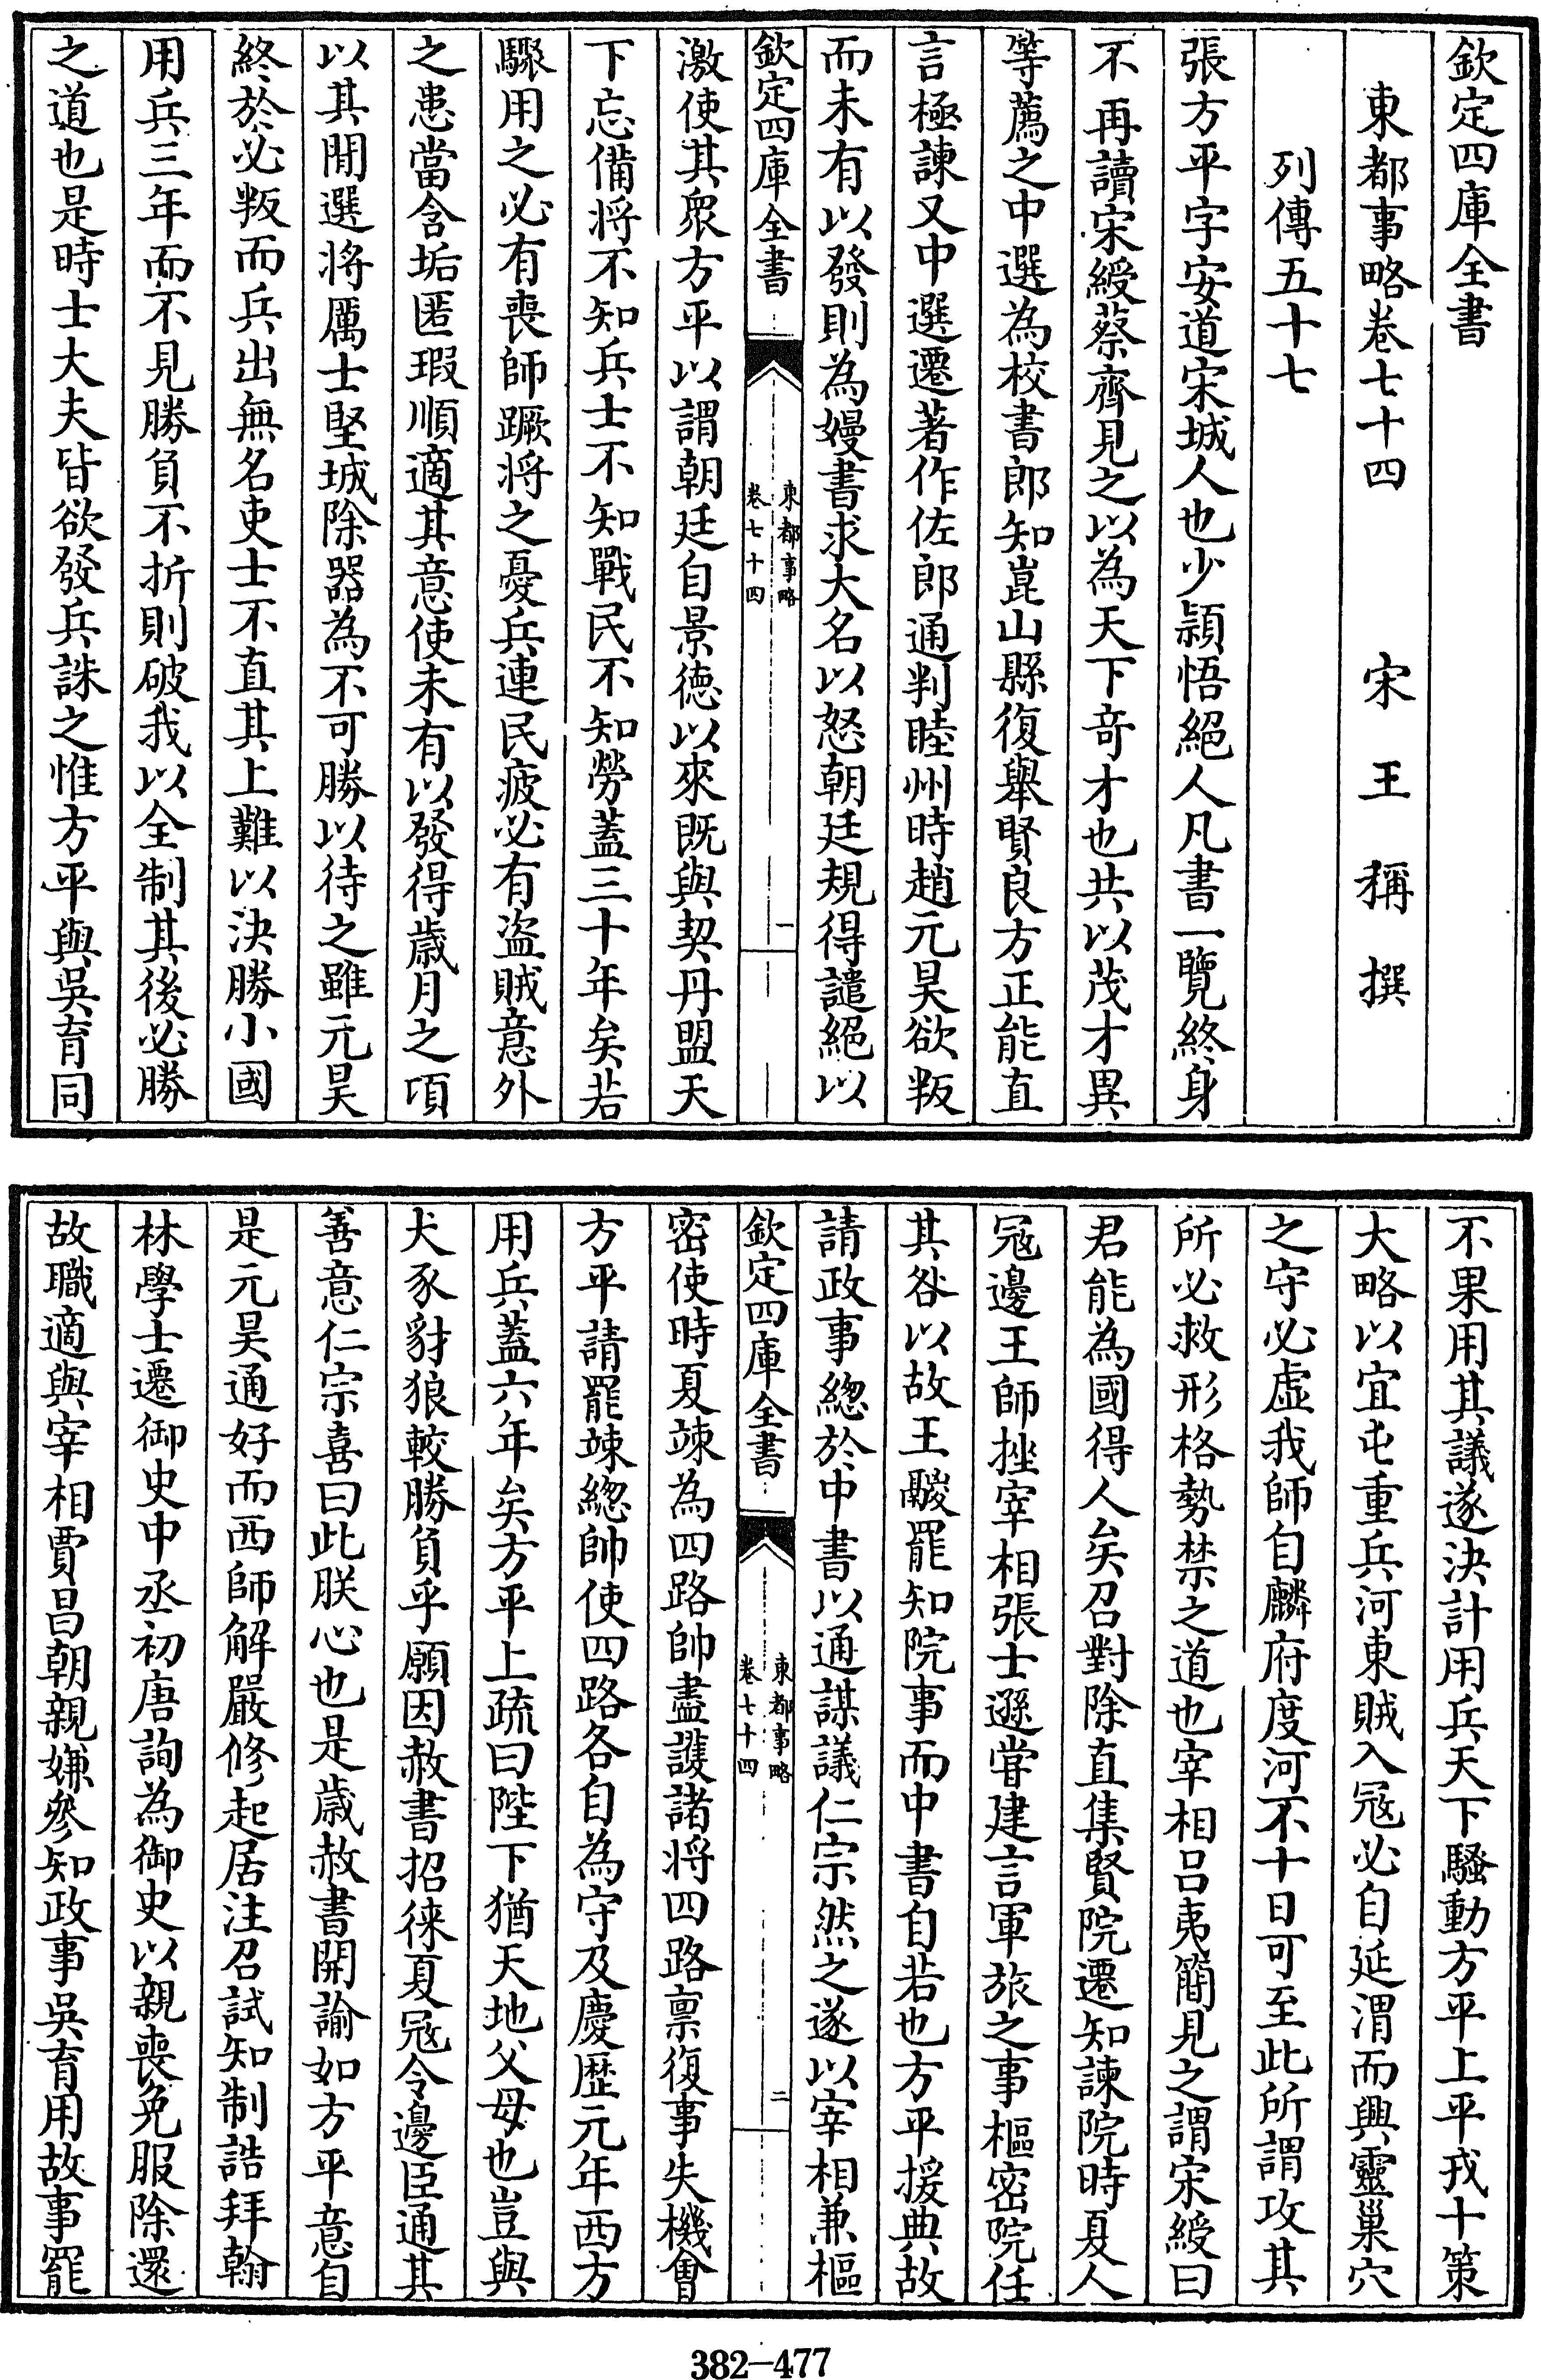 欽定四庫全書
東都事略卷七十四
宋王稱撰
列傳五十七
張方平字安道宋城人也少穎悟絕人凡書一覽終身
不再讀宋綬蔡齊見之以為天下奇才也共以茂才異
等薦之中選為校書郎知崑山縣復舉賢良方正能直
言極諫又中選遷著作佐郎通判睦州時趙元昊欲叛
而未有以發則為嫚書求大名以怒朝廷規得譴絕以
欽定四庫全書
東都事略
卷七十四
一
激使其衆方平以謂朝廷自景德以來既與契丹盟天
下忘備將不知兵士不知戰民不知勞蓋三十年矣若
驟用之必有喪師蹶將之憂兵連民疲必有盜賊意外
之患當含垢匿瑕順適其意使未有以發得歲月之頃
以其閒選將厲士堅城除器為不可勝以待之雖元昊
終於必叛而兵出無名吏士不直其上難以決勝小國
用兵三年而不見勝負不折則破我以全制其後必勝
之道也是時士大夫皆欲發兵誅之惟方平與吳育同
不果用其議遂決計用兵天下騷動方平上平戎十策
大略以宜屯重兵河東賊入冦必自延渭而興靈巢穴
之守必虛我師自麟府度河不十日可至此所謂攻其
所必救形格勢禁之道也宰相呂夷簡見之謂宋綬曰
君能為國得人矣召對除直集賢院遷知諫院時夏人
冦邊王師挫宰相張士遜嘗建言軍旅之事樞密院任
其咎以故王鬷罷知院事而中書自若也方平援典故
請政事緫於中書以通謀議仁宗然之遂以宰相兼樞
欽定四庫全書
東都事略
卷七十四
二
密使時夏竦為四路帥盡護諸將四路禀復事失機會
方平請罷竦緫帥使四路各自為守及慶歷元年西方
用兵蓋六年矣方平上疏曰陛下猶天地父母也豈與
犬豕豺狼較勝負乎願因赦書招徠夏冦令邊臣通其
善意仁宗喜曰此朕心也是歲赦書開諭如方平意自
是元昊通好而西師解嚴修起居注召試知制誥拜翰
林學士遷御史中丞初唐詢為御史以親喪免服除還
故職適與宰相賈昌朝親嫌參知政事吳育用故事罷
382-477